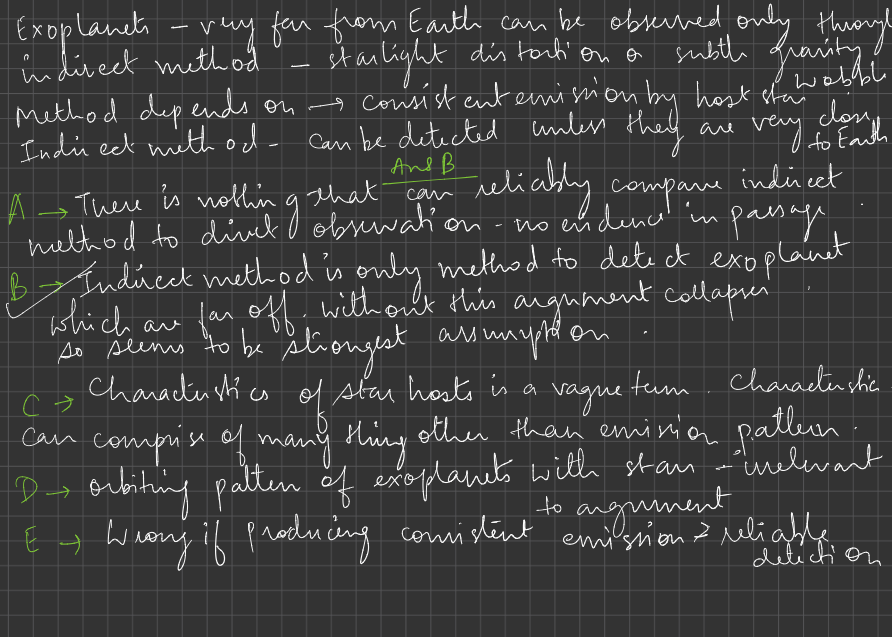 Exoplanets - very far from Earth can be observed only through
indirect method - starlight distortion or subtle gravity
wobble
Method depends on → consistent emission by host star
Indirect method - can be detected unless they are very close
to Earth
Ans B
A → There is nothing that can reliably compare indirect
method to direct observation - no evidence in passage.
B → Indirect method is only method to detect exoplanet
which are far off. without this argument collapses.
so seems to be strongest assumption.
C → Characteristics of star hosts is a vague term. Characteristic
can comprise of many thing other than emission pattern.
D → orbiting pattern of exoplanets with star - irrelevant
to argument
E → Wrong if producing consistent emission > reliable
detection